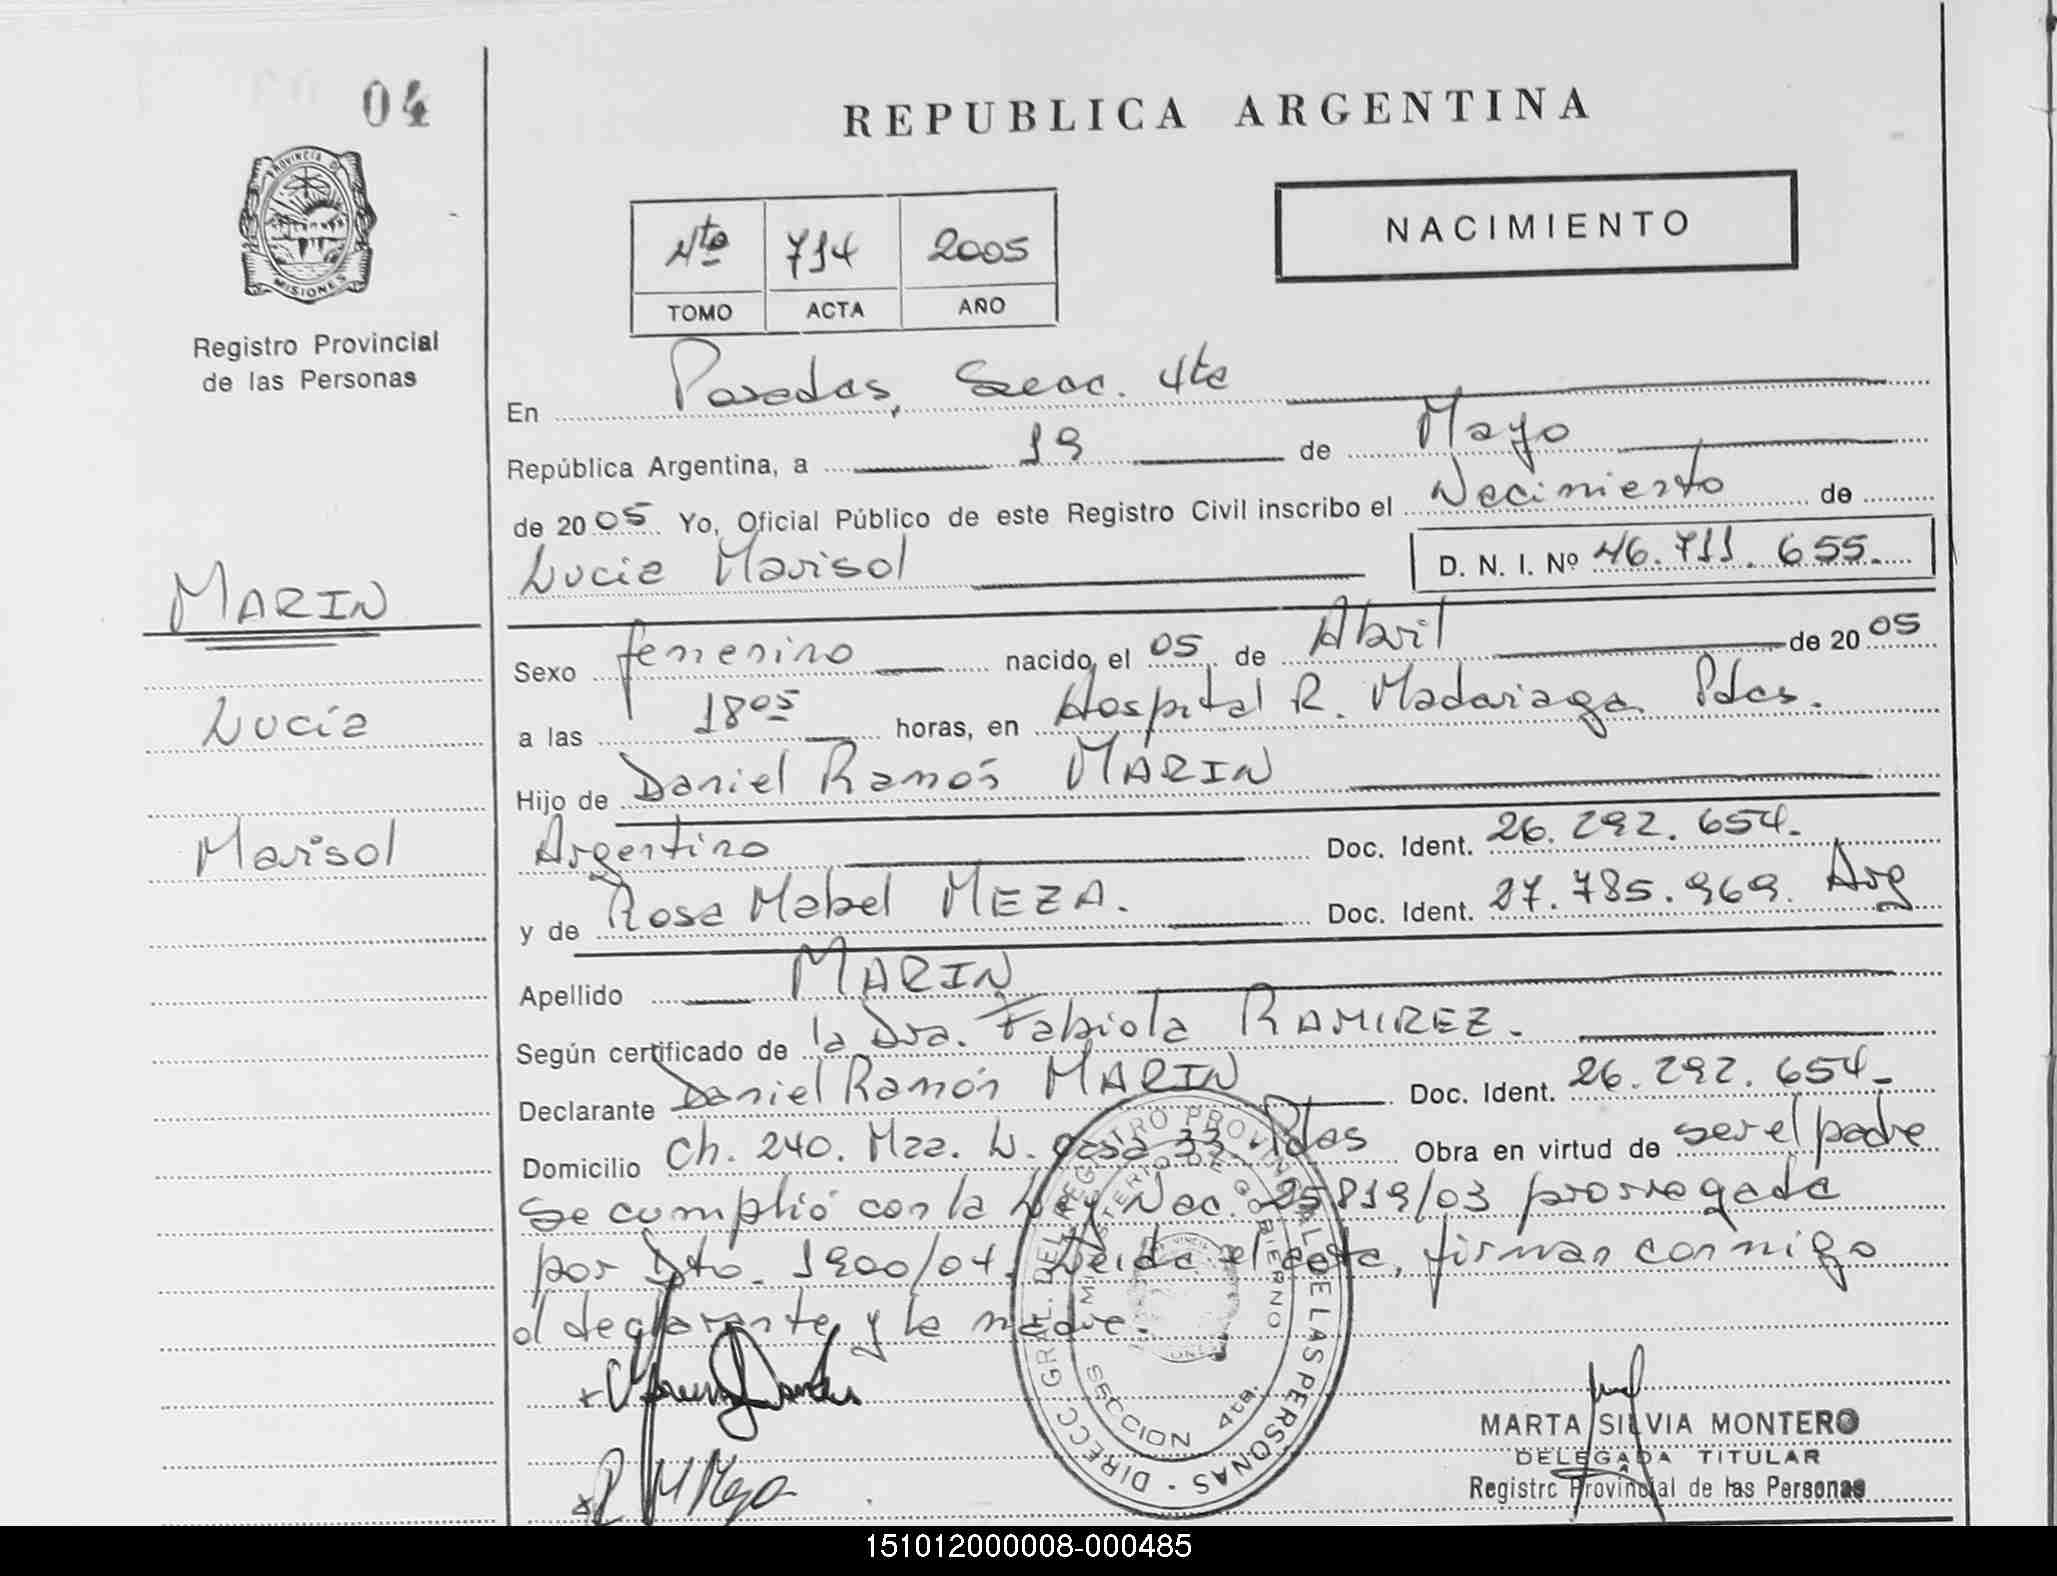 04
REPUBLICA ARGENTINA
PROVINCIA DE
MISIONES
Registro Provincial
de las Personas
Nto 714 2005
TOMO ACTA AÑO
NACIMIENTO
En Posadas, Secc. 4ta
República Argentina, a 19 de Mayo
de 2005 Yo, Oficial Público de este Registro Civil inscribo el Nacimiento de
Lucía Marisol D. N. I. Nº 46.711.655.
MARIN
Lucía
Marisol
Sexo femenino nacido el 05 de Abril de 2005
a las 18 05 horas, en Hospital R. Madariaga Pdas.
Hijo de Daniel Ramón MARIN
Argentino Doc. Ident. 26.292.654.
y de Rosa Mabel MEZA. Doc. Ident. 27.785.969. Arg
Apellido MARIN
Según certificado de la Dra. Fabiola RAMIREZ.
Declarante Daniel Ramón MARIN Doc. Ident. 26.292.654.
Domicilio Ch. 240. Mza. W. casa 33 Pdas Obra en virtud de ser el padre
Se cumplió con la Ley Nac. 25819/03 prorrogada
por Dto. 1900/04. Leída el acta, firman conmigo
el declarante y la madre.
DIRECC GRAL. DEL REGISTRO PROVINCIAL DE LAS PERSONAS
MINISTERIO DE GOBIERNO
SECCION 4ta.
MARTA SILVIA MONTERO
DELEGADA TITULAR
Registro Provincial de las Personas
151012000008-000485